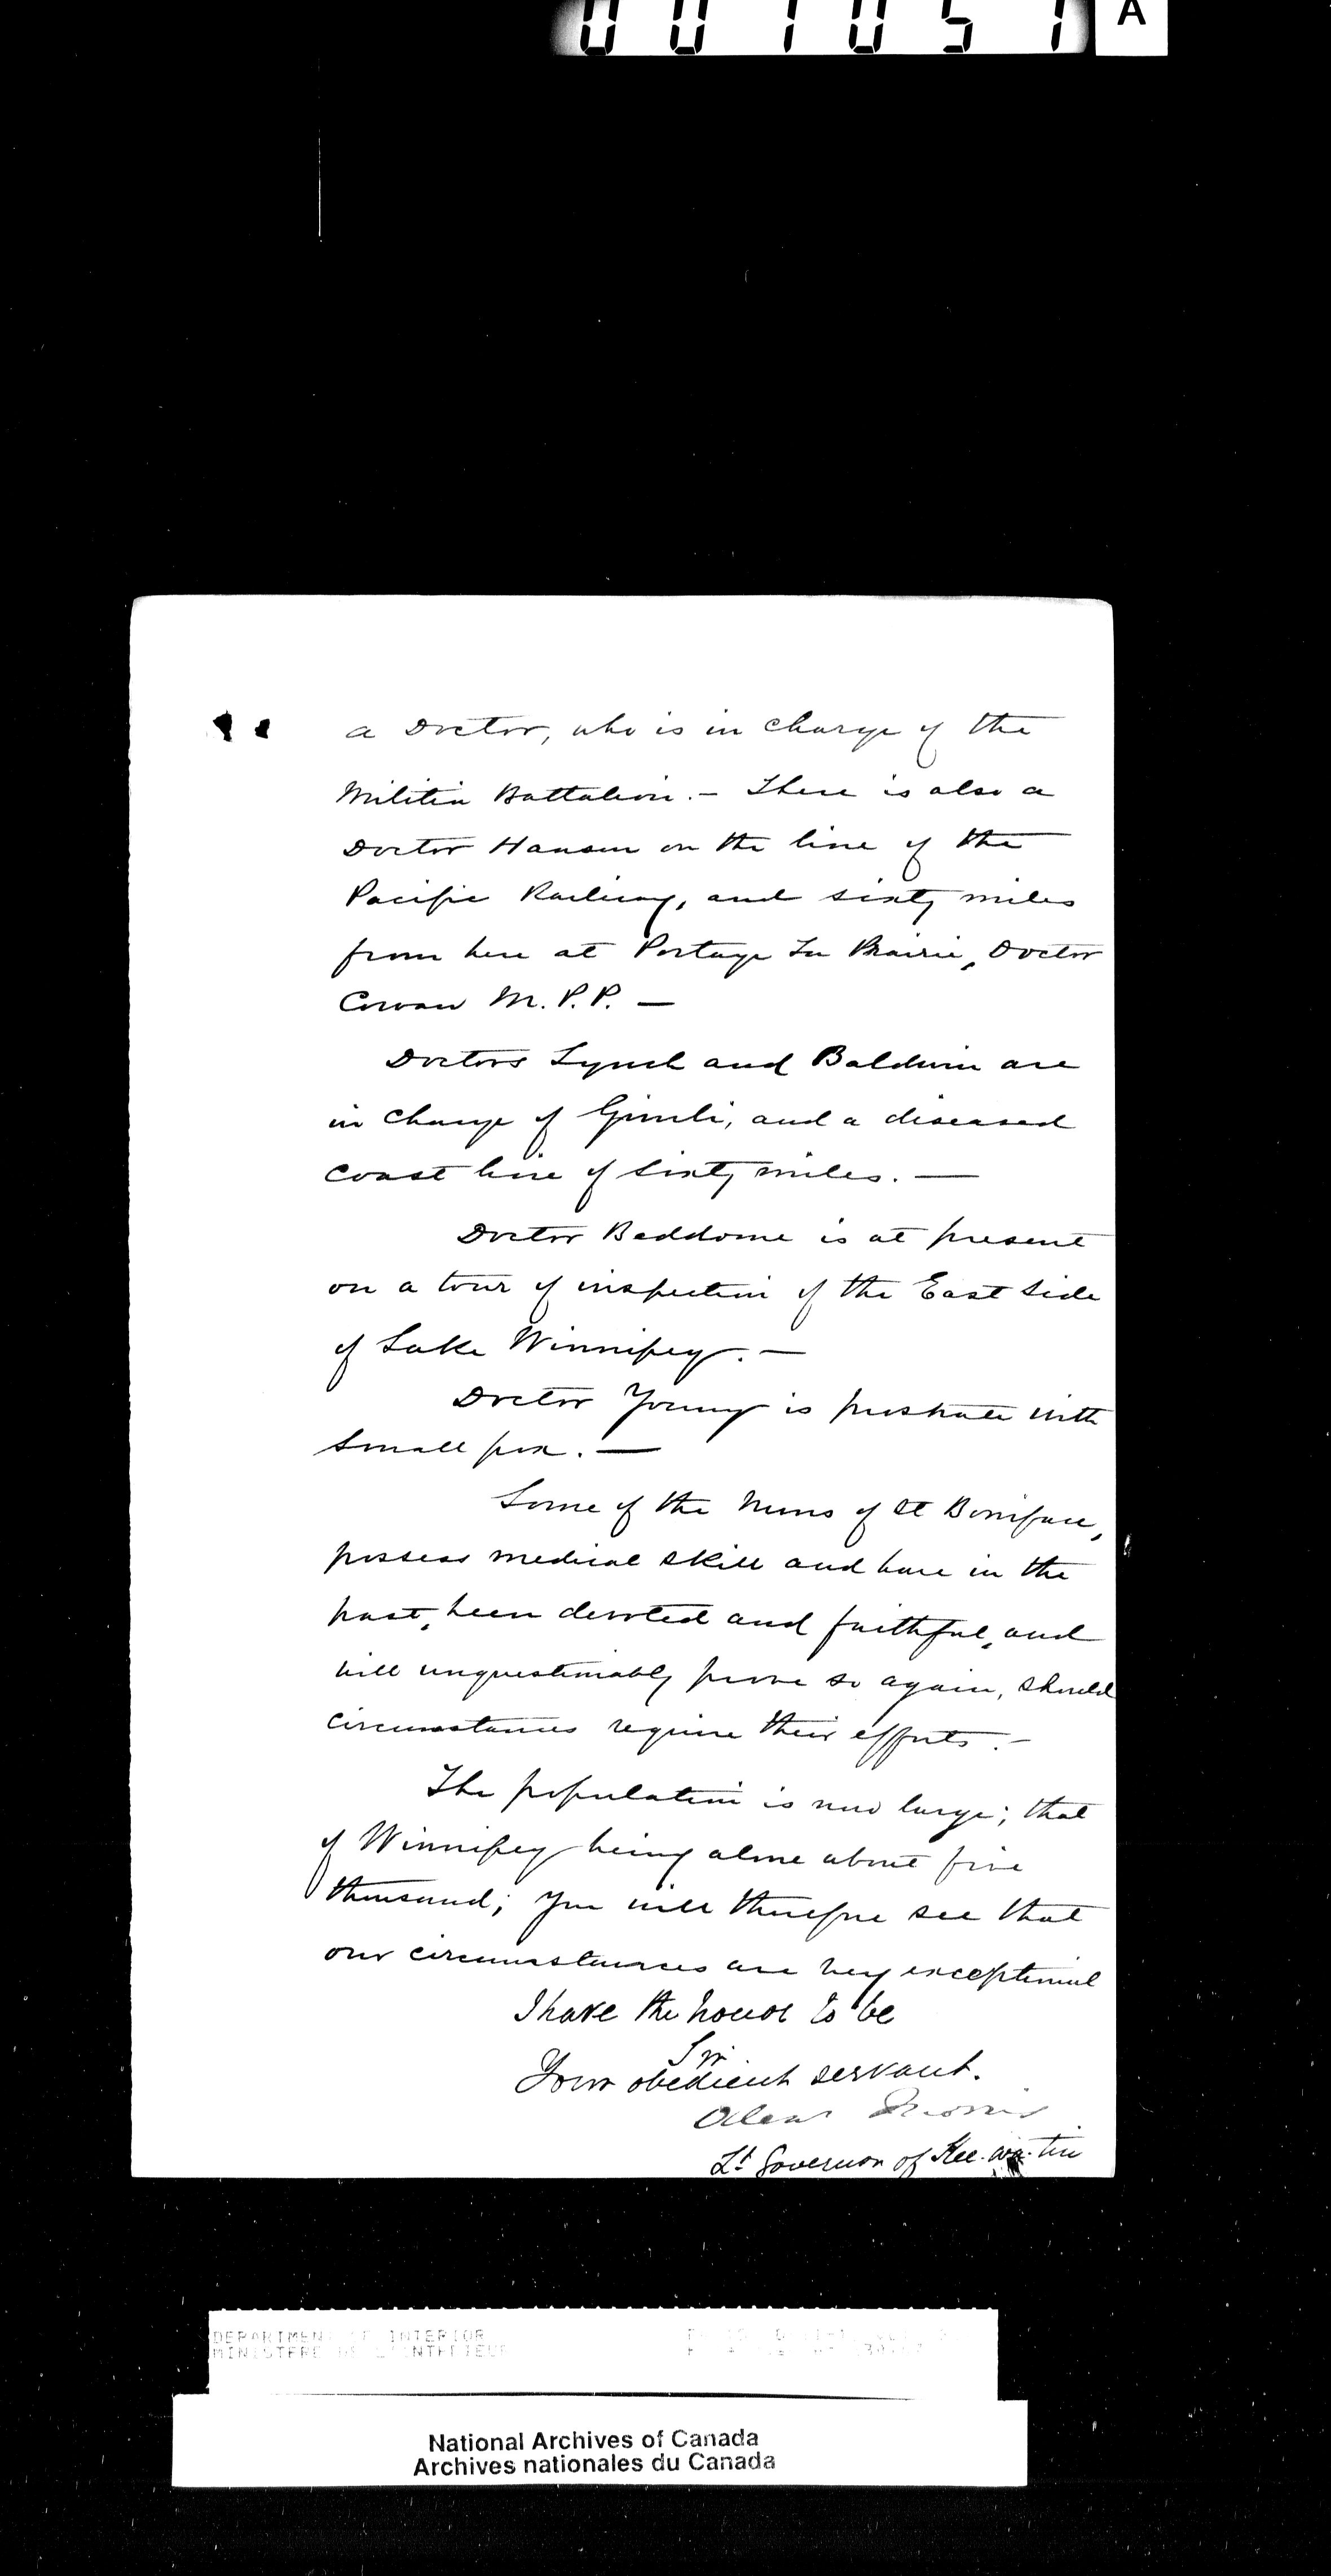 001051 A
a Doctor, who is in charge of the
Militia Battalion. – There is also a
Doctor Hanson on the line of the
Pacific Railway, and sixty miles
from here at Portage La Prairie, Doctor
Cowan M.P.P. —
Doctors Lynch and Baldwin are
in charge of Gimli, and a diseased
coast line of sixty miles. —
Doctor Beddome is at present
on a tour of inspection of the East side
of Lake Winnipeg. —
Doctor Young is prostrate with
small pox. —
Some of the Nuns of St Boniface,
possess medical skill and have in the
past, been devoted and faithful, and
will unquestionably prove so again, should
circumstances require their efforts. –
The population is now large; that
of Winnipeg being alone about five
thousand; you will therefore see that
our circumstances are very exceptional
I have the honor to be
Sir
Your obedient servant.
Alexr Morris
Lt Governor of Kee-wa-tin
DEPARTMENT OF INTERIOR
MINISTERE DE L'INTERIEUR
National Archives of Canada
Archives nationales du Canada